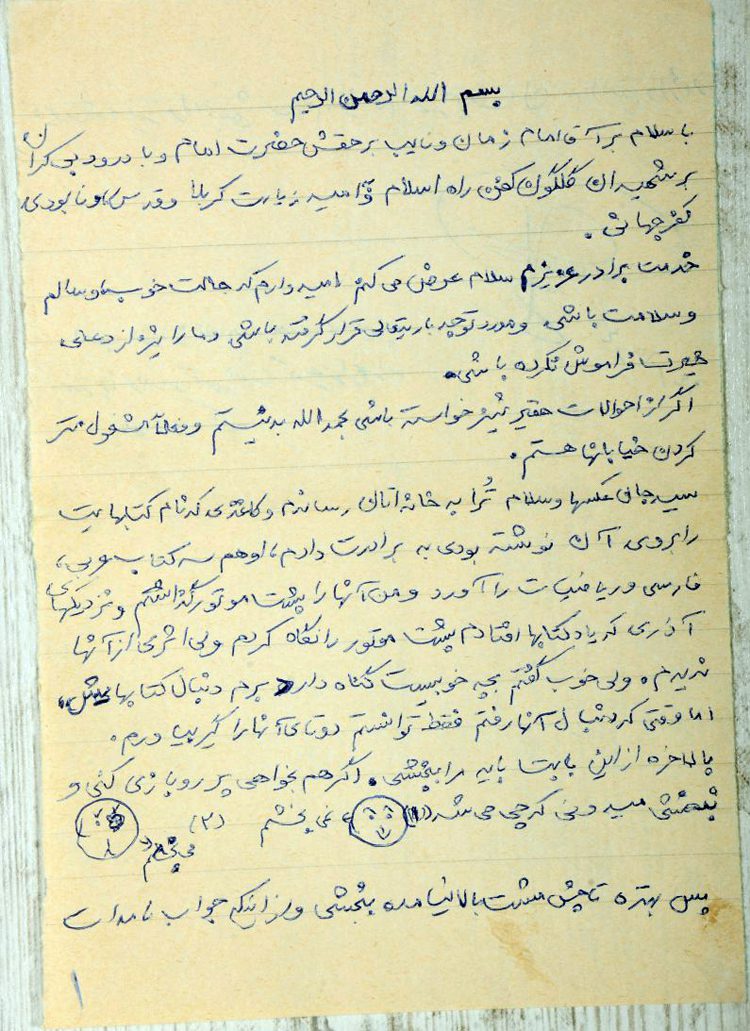 بسم الله الرحمن الرحیم
با سلام بر آقا امام زمان و نایب بر حقش حضرت امام و با درود بی کران
بر شهیدان گلگون کفن راه اسلام و به امید زیارت کربلا و قدس و نابودی
کفر جهانی .
خدمت برادر عزیزم سلام عرض می کنم امیدوارم که حالت خوب و سالم
و سلامت باشی و مورد توجه باریتعالی قرار گرفته باشی و ما را نیز از دعای
خیرت فراموش نکرده باشی.
اگر از احوالات حقیر نیز خواسته باشی بحمدالله بد نیستم و فعلاً مشغول متر
کردن خیابانها هستم .
سید جان عکسها و سلام تُرا به خانه اتان رساندم و کاغذی که نام کتابهایت
را بروی آن نوشته بودی به برادرت دادم، او هم سه کتاب عربی،
فارسی و ریاضیات را آورد و من آنها را پشت موتور گذاشتم و نزدیکهای
آذری که یاد کتابها افتادم پشت موتور را نگاه کردم ولی اثری از آنها
ندیدم . ولی خوب گفتم بچه خوبیست گناه دارد برم دنبال کتابهایش،
اما وقتی که دنبال آنها رفتم فقط توانستم دوتای آنها را گیر بیاورم .
بالاخره از این بابت باید مرا ببخشی . اگر هم بخواهی پررو بازی کنی و
نبخشی میدونی که چی میشه (۱) نمی بخشم (۲)
می بخشم
پس بهتره تا چش مشت بالا نیامده ببخشی و از اینکه جواب نامه ات
۱